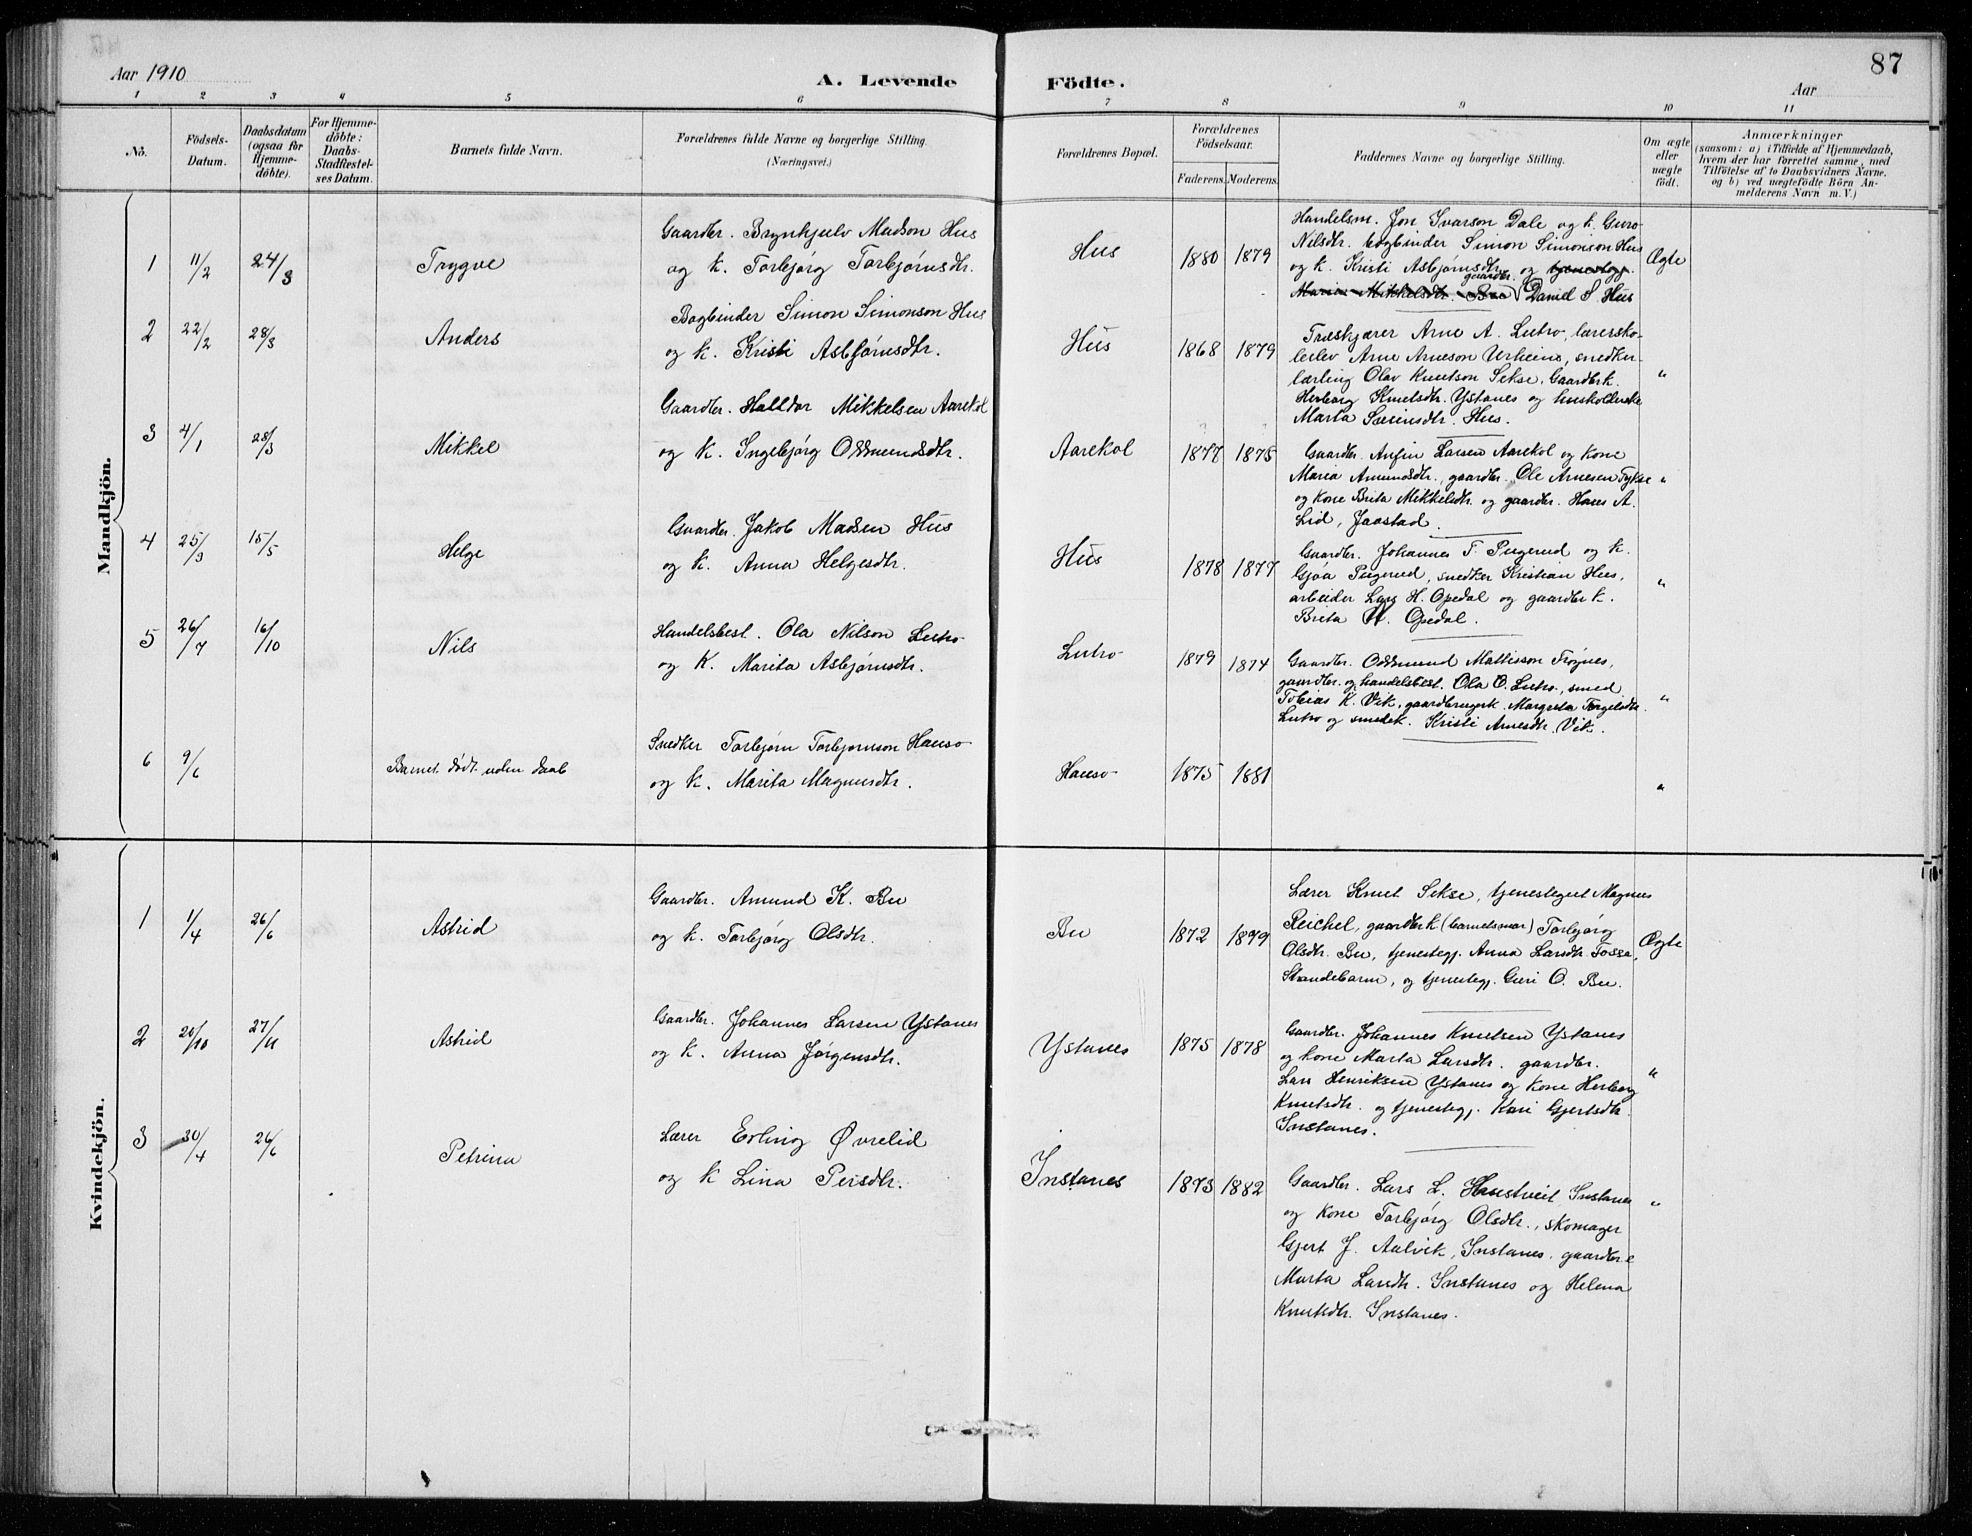 Aar 1910
A. Levende Födte.
Aar
87
1 2 3 4 5 6 7 8 9 10 11
No.
Födsels-
Datum.
Daabsdatum
(ogsaa for
Hjemme-
döbte).
For Hjemme-
döbte:
Daabs-
Stadfæstel-
ses Datum.
Barnets fulde Navn.
Forældrenes fulde Navne og borgerlige Stilling.
(Næringsvei.)
Forældrenes Bopæl.
Forældrenes
Födselsaar.
Faderens. Moderens.
Faddernes Navne og borgerlige Stilling.
Om ægte
eller
uægte
födt.
Anmærkninger
(saasom: a) i Tilfælde af Hjemmedaab,
hvem der har forrettet samme, med
Tilföielse af to Daabsvidners Navne.
og b) ved uægtefödte Börn An-
melderens Navn m. V.)
Mandkjön.
1 11/2 24/3 Trygve
Gaardbr. Brynhjulv Madson Hus
og k. Torbjørg Torbjørnsdtr.
Hus 1880 1879
Handelsm. Jon Ivarson Dale og k. Guro
Nilsdtr. bogbinder Simon Simonson Hus
og k. Kristi Asbjørnsdtr. og tjenestegj.
Maria Mikkelsdtr. Bu gaardbr. Daniel S. Hus
Ægte
2 22/2 28/3 Anders
Bogbinder Simon Simonson Hus
og k. Kristi Asbjørnsdtr.
Hus 1868 1879
Træskjærer Arne A. Lutro, lærersko-
leelev Arne Arneson Urheim, snedker-
lærling Olav Knutson Sekse, Gaardbrk.
Herborg Knutsdtr. Ystanes og husholderske
Marta Sæunsdtr. Hus.
"
3 4/1 28/3 Mikkel
Gaardbr. Halldor Mikkelsen Aarekol
og k. Ingebjørg Oddmundsdtr.
Aarekol 1877 1875
Gaardbr. Anfin Larsen Aarekol og kone
Maria Amundsdtr., gaardbr. Ole Arnesen Fykse
og kone Brita Mikkelsdtr. og gaardbr. Hans A.
Lid, Jaastad.
"
4 25/3 15/5 Helge
Gaardbr. Jakob Madsen Hus
og k. Anna Helgesdtr.
Hus 1878 1877
Gaardbr. Johannes T. Pugerud og k.
Gjøa Pugerud, snedker Kristian Hus,
arbeider Lars H. Opedal og gaardbr k.
Brita H. Opedal.
"
5 26/7 16/10 Nils
Handelsbest. Ola Nilson Lutro
og K. Marita Asbjørnsdtr.
Lutro 1879 1874
Gaardbr. Oddmund Mattisson Trøgnes,
gaardbr. og handelsbest. Ola O. Lutro, smed
Tobias K. Vik, gaardbrugerk. Margreta Torgilsdtr.
Lutro og smedek. Kristi Arnesdtr. Vik.
"
6 9/6 Barnet dødt uden daab
Snedker Torbjørn Torbjørnson Hauso
og k. Marita Magnusdtr.
Hauso 1875 1881
"
Kvindekjön.
1 1/4 26/6 Astrid
Gaardbr. Amund K. Bu
og k. Torbjørg Olsdtr.
Bu 1872 1879
Lærer Knut Sekse, tjenestegut Magnus
Reichel, gaardbr k (barnets mor) Torbjørg
Olsdtr. Bu, tjenestegj. Anna Larsdtr. Fosse,
Strandebarm, og tjenestegj. Guri O. Bu.
Ægte
2 20/10 27/11 Astrid
Gaardbr. Johannes Larsen Ystanes
og k. Anna Jørgensdtr.
Ystanes 1875 1878
Gaardbr. Johannes Knutsen Ystanes
og kone Marta Larsdtr. gaardbr.
Lars Henriksen Ystanes og kone Herborg
Knutsdtr. og tjenestegj. Kari Gjertsdtr.
Instanes.
"
3 30/4 26/6 Petrina
Lærer Erling Øvrelid
og k Lina Persdtr.
Instanes 1873 1882
Gaardbr. Lars L. Haustveit Instanes
og kone Torbjørg Olsdtr., skomager
Gjert J. Aalvik, Instanes. gaardbr.
Marta Larsdtr. Instanes og Helena
Knutsdtr. Instanes.
"